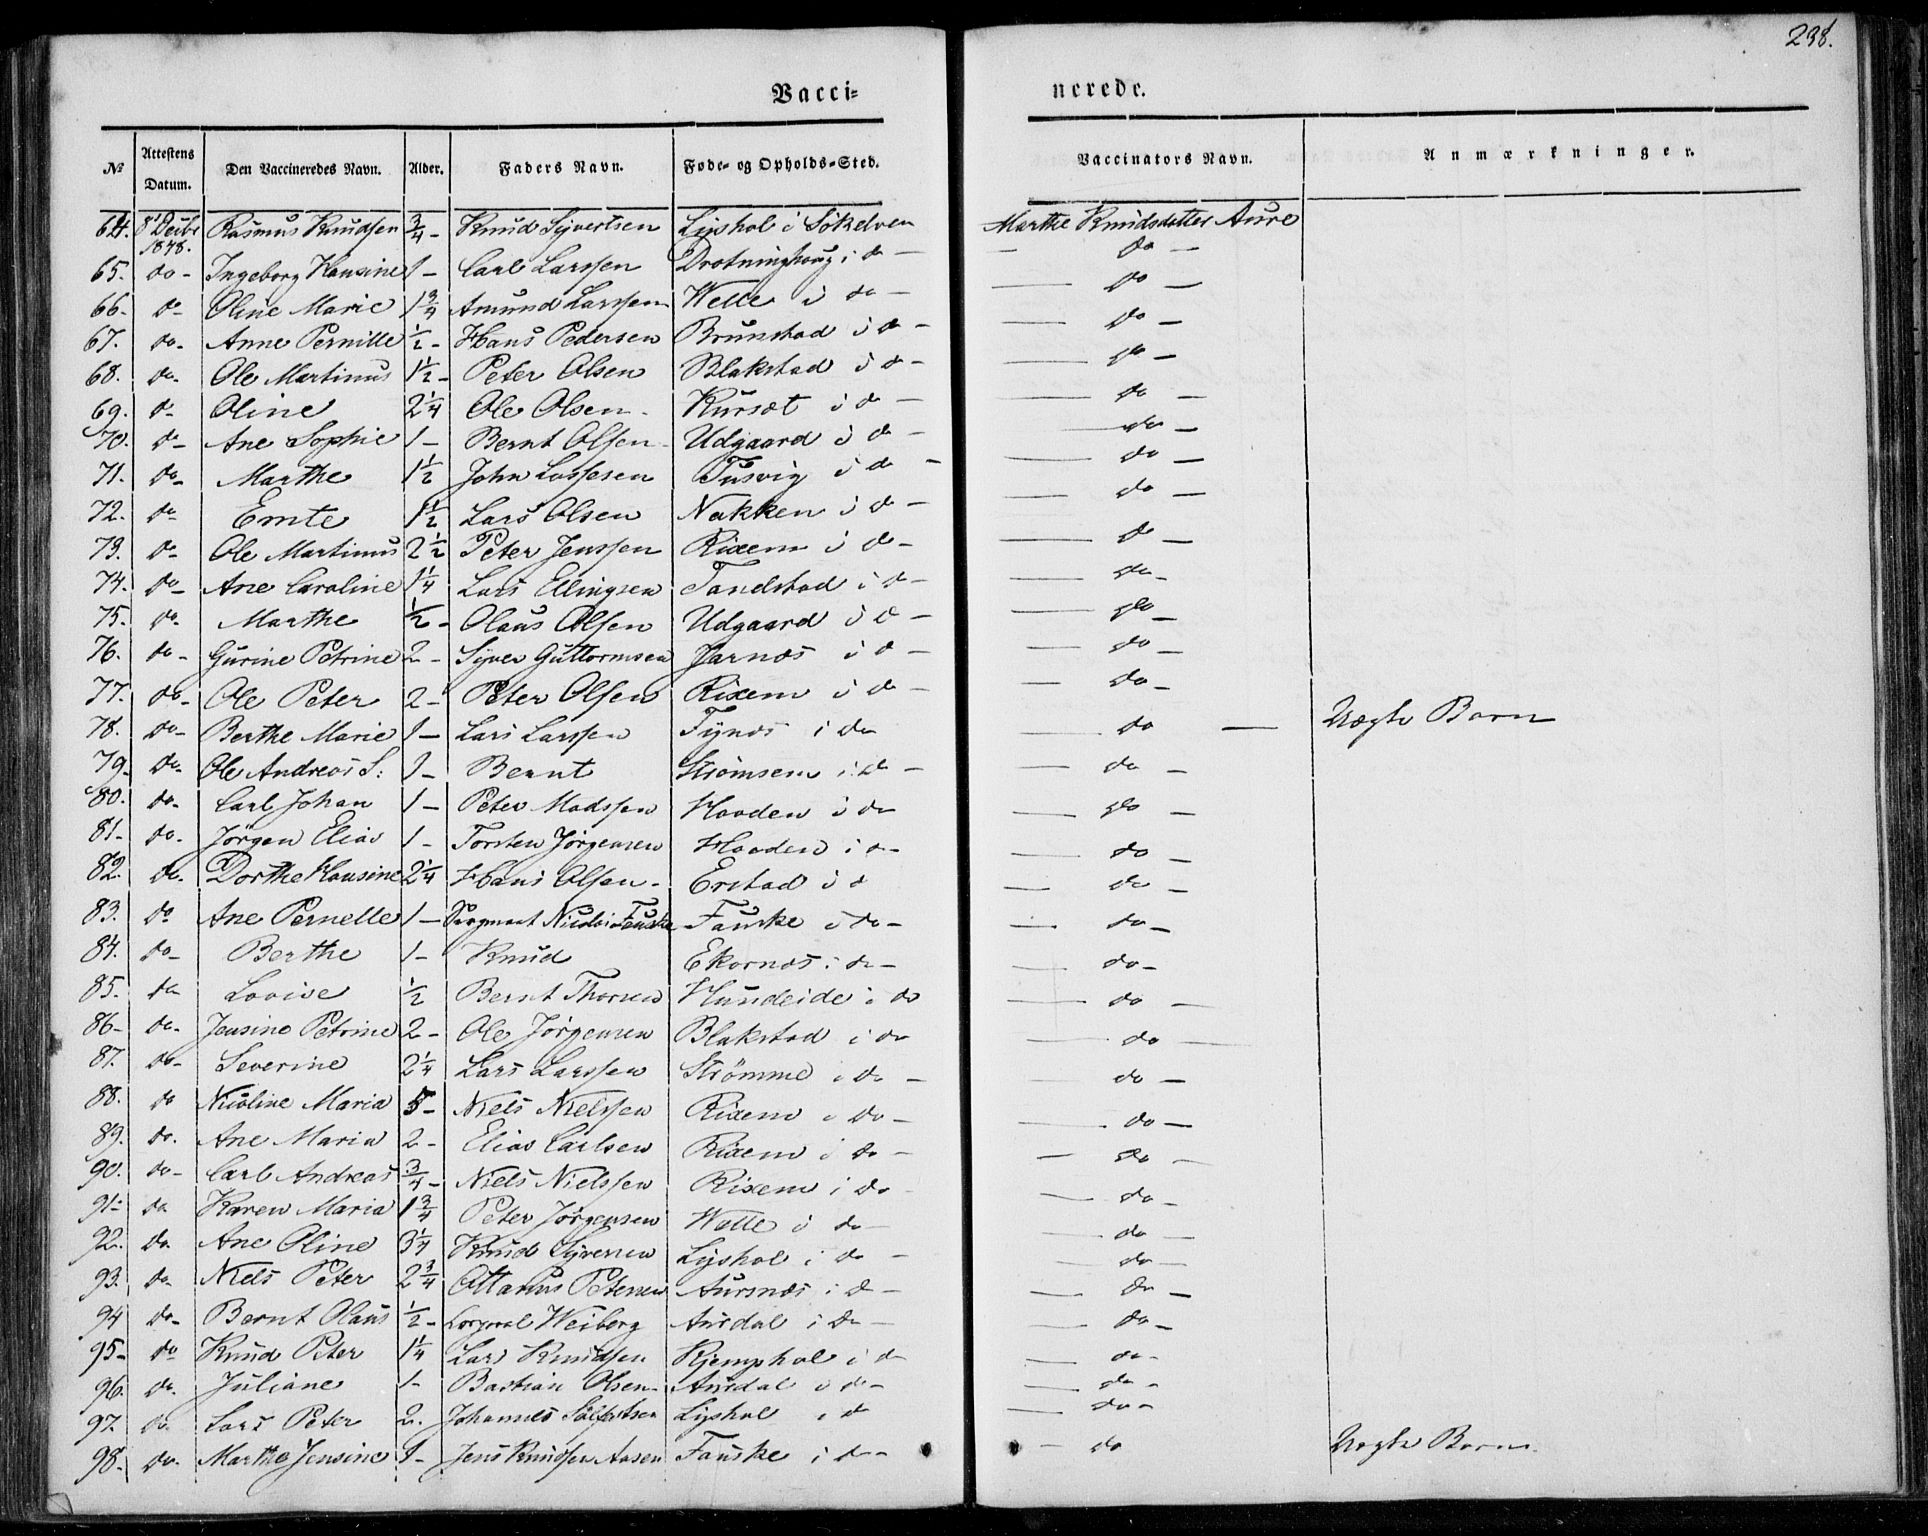 238.
Vacci= nerede.
№ Attestens Datum. Den Vaccineredes Navn. Alder. Faders Navn. Føde- og Opholds-Sted. Vaccinators Navn. Anmærkninger.
64. 8' Decbr 1848. Rasmus Knudsen 3/4 - Knud Syvertsen Lyshol i Søkelven Marthe Knudsdatter Aure
65. do - Ingeborg Hansine 1 - Carl Larssen Drotninghoug i do - — do —
66. do Oline Marie 1 3/4 Amund Larssen Welle i do - — do —
67. do - Anne Pernille 1/2 - Hans Pedersen Brunstad i do - — do —
68. do - Ole Martinus 1 1/2 - Peter Olsen Blakstad i do - — do —
69. do Oline 2 1/4 Ole Olsen - Kursæt i do - — do —
70. do - Ane Sophie 1 - Bernt Olsen - Udgaard i do - — do —
71. do - Marthe 1 1/2 John Lassesen Tusvig i do - — do —
72. do Emte 1 1/2 Lars Olsen Nakken i do - — do —
73. do Ole Martinus 2 1/2 Peter Jenssen Rixem i do - — do —
74. do - Ane Caroline 1 1/4 Lars Ellingsen Tandstad i do - — do -
75. do Marthe 1/2 - Olaus Olsen Udgaard i do - — do —
76. do - Gurine Petrine 2 - Syver Guttormsen Jarnæs i do - — do —
77. do - Ole Peter 2 - Peter Olsen Rixem i do - — do -
78. do - Berthe Marie 1 - Lars Larssen Tynæs i do — do — Uægte Barn
79. do - Ole Andreas S: 1 - Bernt Strømsem i do - — do -
80. do - Carl Johan 1 - Peter Madssen Hovden i do — do —
81 - do - Jørgen Elias 1 - Torsten Jørgensen Hovden i do - — do —
82. do. Dorthe Hansine 2 1/4 Hans Olsen - Erstad i do — do —
83. do Ane Pernelle 1 - Sergeant Nicolai Fauske Fauske i do - — do —
84. do - Berthe 1 - Knud Ekornæs i do - — do -
85. do Lovise 1/2 Bernt Thorsen Hundeide i do — do —
86 - do - Jensine Petrine 2 - Ole Jørgensen Blakstad i do — do —
87. do - Severine 2 1/4 Lars Larssen Strømme i do - — do —
88. do Nicoline Maria 5 - Niels Nielssen Rixem i do - — do —
89. do. Ane Maria 2 - Elias Carlsen Rixem i do - — do —
90. do - Carl Andreas 3/4 - Niels Nielssen Rixem i do — do -
91 - do Karen Maria 1 3/4 Peter Jørgensen Welle i do - — do —
92. do. Ane Oline 3 1/4 Knud Syversen Lyshol i do - — do —
93. do - Niels Peter 2 3/4 Ottarius Petersen Aursnæs i do - — do —
94 do - Bernt Olaus 1/2 - Weiberg Aurdal i do - — do —
95 - do Knud Peter 1 1/4 Lars Knudsen Kjemphol i do — do -
96. do. Juliane 1 - Bastian Olsen - Aurdal i do - — do -
97. do Lars Peter 2. Johannes Lyshol i do — do -
98. do. Marthe Jensine 1 - Jens Knudsen Aasen Fauske i do - — do Uægte Barn.